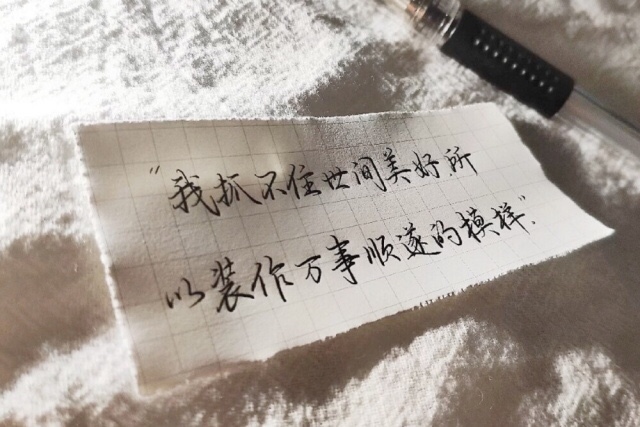 "我抓不住世间美好所
以装作万事顺遂的模样".